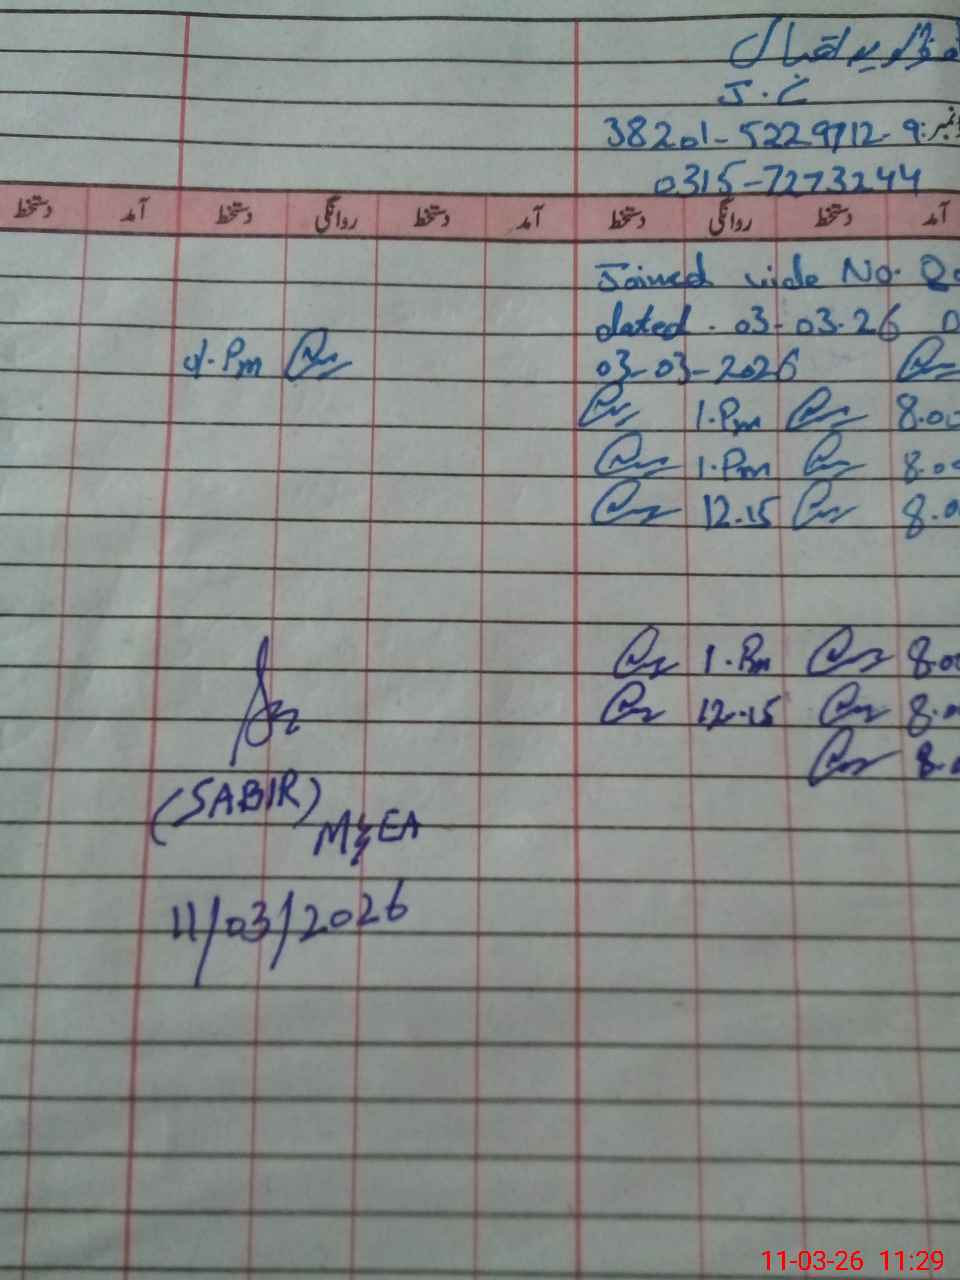 ج . ت
38201-5229712-9 نمبر:
0315-7273244
آمد دستخط روانگی دستخط آمد دستخط روانگی دستخط آمد دستخط
Joined vide No.
dated . 03-03-26
03-03-2026
4.Pm
1.Pm 8.00
1.Pm 8.00
12.15 8.0
1.Pm 8.00
12.15 8.0
8.0
(SABIR)
M&EA
11/03/2026
11-03-26 11:29